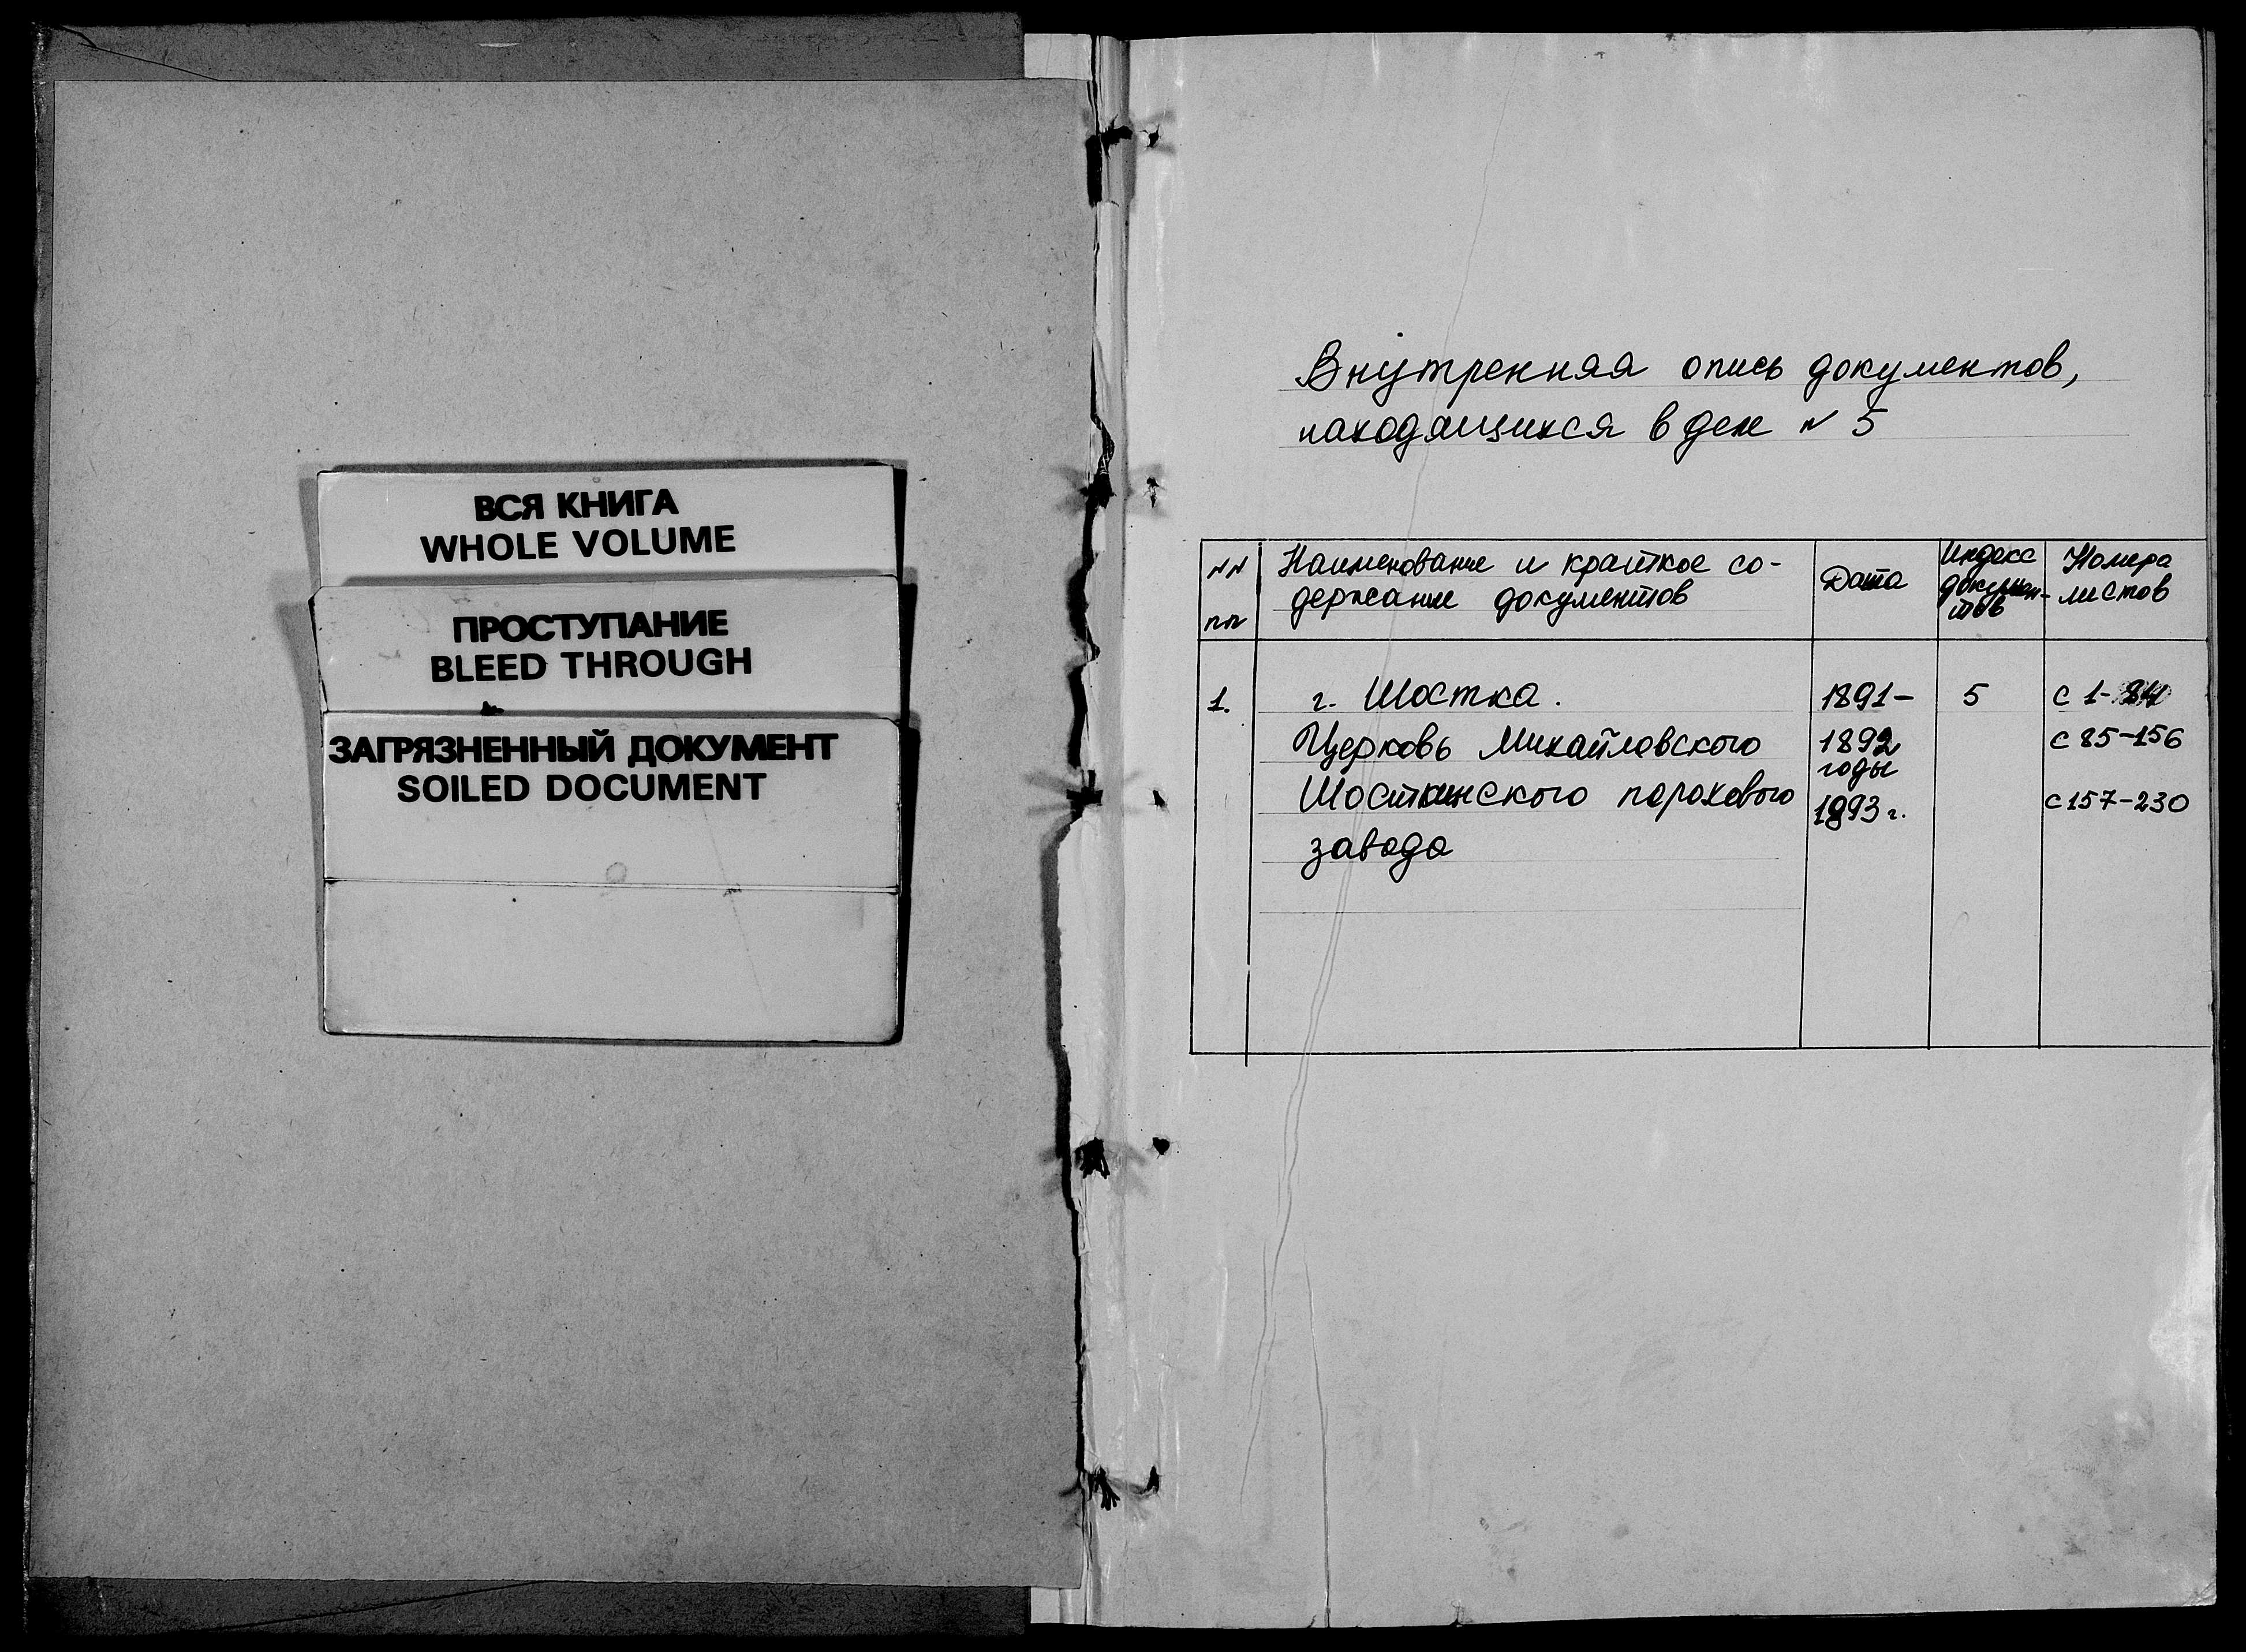 ВСЯ КНИГА
WHOLE VOLUME
ПРОСТУПАНИЕ
BLEED THROUGH
ЗАГРЯЗНЕННЫЙ ДОКУМЕНТ
SOILED DOCUMENT
Внутренняя опись документов,
находящихся в деле № 5
№№ пп
Наименование и краткое со-
держание документов
Дата
Индекс
докумен-
тов
Номера
листов
1. г. Шостка. 1891- 5 с 1-84
Церковь Михайловского 1892 с 85-156
годы
Шосткинского порохового 1893 г. с 157-230
завода